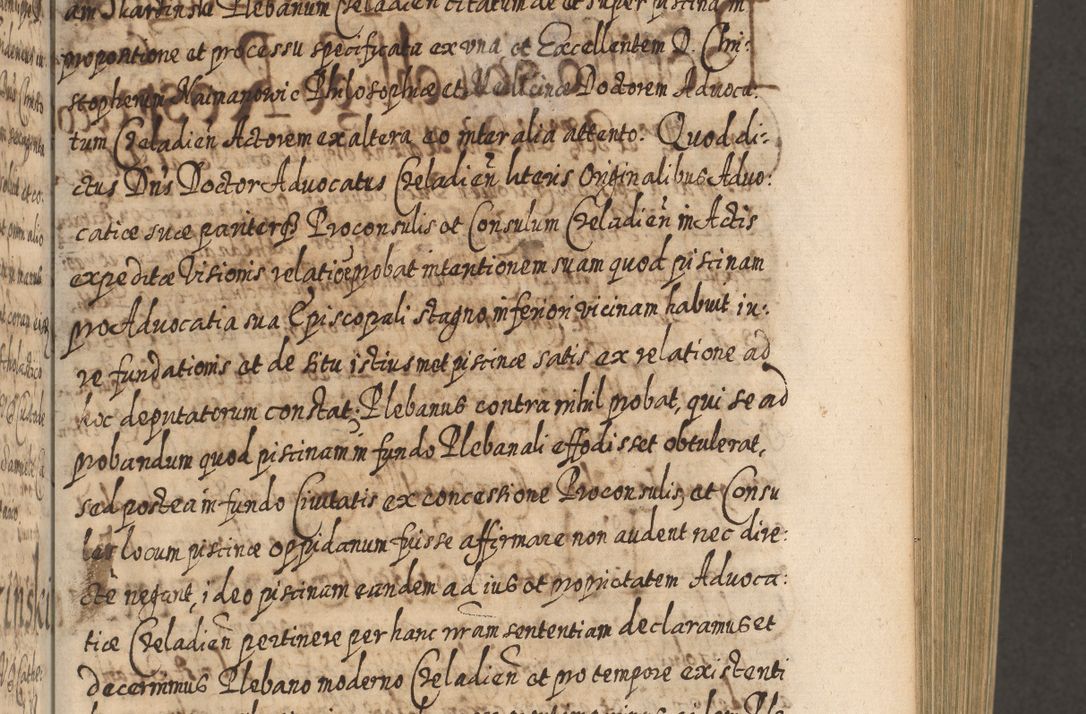 am Skarsinski Plebanum Czeladien citatum de et super piscina in
propositione et processu specificata ex vna et Excellentem D. Chri-
stopherum Naimanowic Philosophiæ et Medicinæ Doctorem Aduoca:
tum Czeladien Actorem ex altera eo inter alia attento: Quod di:
ctus Dns Doctor Aduocatus Czeladien literis Originalibus Aduo:
catiæ suæ pariterq3 Proconsulis et Consulum Czeladien in Actis
expeditæ Visionis relatione probat intentionem suam quod piscinam
pro Aduocatia sua Episcopali stagno inferiori vicinam habuit iu:
re fundationis et de situ istiusmet piscinæ satis ex relatione ad
hoc deputatorum constat. Plebanus contra nihil probat, qui se ad
probandum quod piscinam in fundo Plebanali effodisset obtulerat,
sed postea in fundo Ciuitatis ex concessione Proconsulis, et Consu
les locum piscinæ oppidanum fuisse affirmare non audent nec dire:
cte negant, ideo piscinam eandem ad ius et proprietatem Aduoca:
tiæ Czeladien pertinere per hanc nram sententiam declaramus et
decernimus Plebano moderno Czeladien et pro tempore existenti